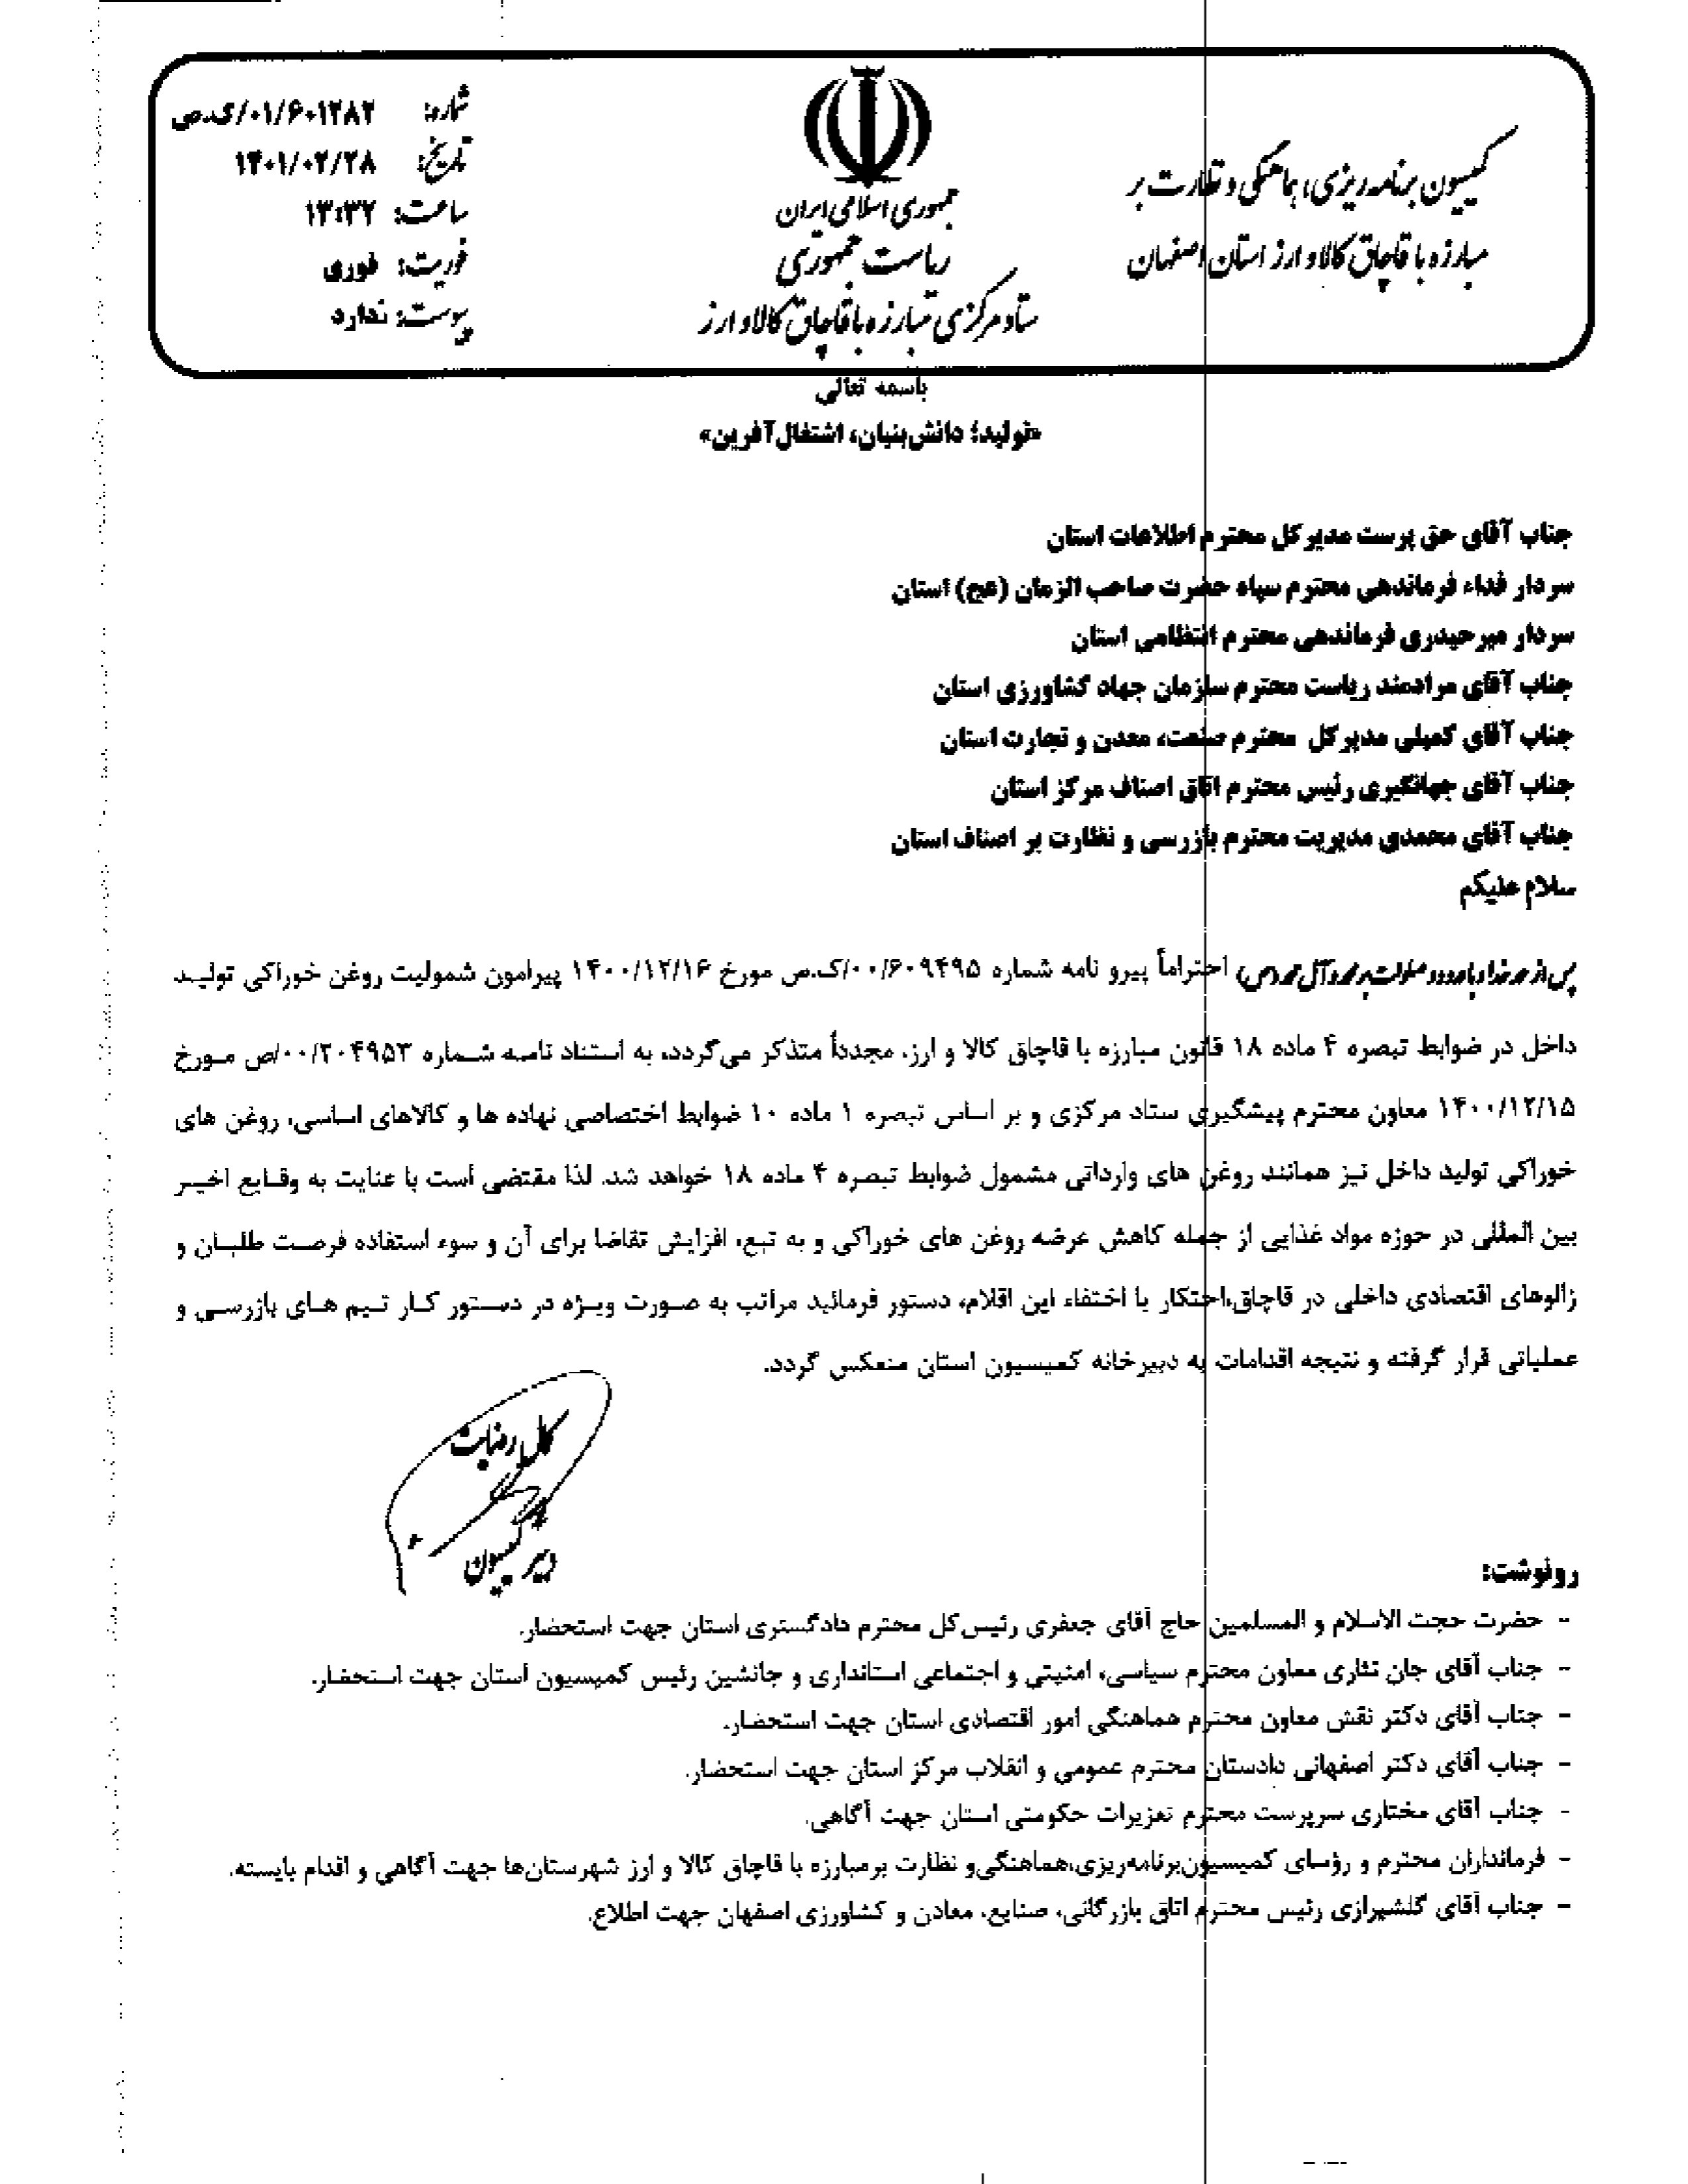 کمیسیون برنامه ریزی، هماهنگی و نظارت بر
مبارزه با قاچاق کالا و ارز استان اصفهان
جمهوری اسلامی ایران
ریاست جمهوری
ستاد مرکزی مبارزه با قاچاق کالا و ارز
شماره: ۰۱/۶۰۱۲۸۲/ک.ص
تاریخ: ۱۴۰۱/۰۲/۲۸
ساعت: ۱۳:۳۲
فوریت: فوری
پیوست: ندارد
باسمه تعالی
«تولید؛ دانش‌بنیان، اشتغال‌آفرین»
جناب آقای حق پرست مدیرکل محترم اطلاعات استان
سردار فداء فرماندهی محترم سپاه حضرت صاحب الزمان (عج) استان
سردار میرحیدری فرماندهی محترم انتظامی استان
جناب آقای مرادمند ریاست محترم سازمان جهاد کشاورزی استان
جناب آقای کمیلی مدیرکل محترم صنعت، معدن و تجارت استان
جناب آقای جهانگیری رئیس محترم اتاق اصناف مرکز استان
جناب آقای محمدی مدیریت محترم بازرسی و نظارت بر اصناف استان
سلام علیکم
پس از حمد خدا و با درود و صلوات بر محمد و آل محمد(ص)، احتراماً پیرو نامه شماره ۰۰/۶۰۹۴۹۵/ک.ص مورخ ۱۴۰۰/۱۲/۱۶ پیرامون شمولیت روغن خوراکی تولید
داخل در ضوابط تبصره ۴ ماده ۱۸ قانون مبارزه با قاچاق کالا و ارز، مجدداً متذکر می‌گردد، به استناد نامه شماره ۰۰/۲۰۴۹۵۳/ص مورخ
۱۴۰۰/۱۲/۱۵ معاون محترم پیشگیری ستاد مرکزی و بر اساس تبصره ۱ ماده ۱۰ ضوابط اختصاصی نهاده ها و کالاهای اساسی، روغن های
خوراکی تولید داخل نیز همانند روغن های وارداتی مشمول ضوابط تبصره ۴ ماده ۱۸ خواهد شد. لذا مقتضی است با عنایت به وقایع اخیر
بین المللی در حوزه مواد غذایی از جمله کاهش عرضه روغن های خوراکی و به تبع، افزایش تقاضا برای آن و سوء استفاده فرصت طلبان و
زالوهای اقتصادی داخلی در قاچاق،احتکار یا اختفاء این اقلام، دستور فرمائید مراتب به صورت ویژه در دستور کار تیم های بازرسی و
عملیاتی قرار گرفته و نتیجه اقدامات به دبیرخانه کمیسیون استان منعکس گردد.
دبیر کمیسیون
رونوشت:
- حضرت حجت الاسلام و المسلمین حاج آقای جعفری رئیس‌کل محترم دادگستری استان جهت استحضار.
- جناب آقای جان نثاری معاون محترم سیاسی، امنیتی و اجتماعی استانداری و جانشین رئیس کمیسیون استان جهت استحضار.
- جناب آقای دکتر نقش معاون محترم هماهنگی امور اقتصادی استان جهت استحضار.
- جناب آقای دکتر اصفهانی دادستان محترم عمومی و انقلاب مرکز استان جهت استحضار.
- جناب آقای مختاری سرپرست محترم تعزیرات حکومتی استان جهت آگاهی.
- فرمانداران محترم و رؤسای کمیسیون‌برنامه‌ریزی،هماهنگی‌و نظارت برمبارزه با قاچاق کالا و ارز شهرستان‌ها جهت آگاهی و اقدام بایسته.
- جناب آقای گلشیرازی رئیس محترم اتاق بازرگانی، صنایع، معادن و کشاورزی اصفهان جهت اطلاع.